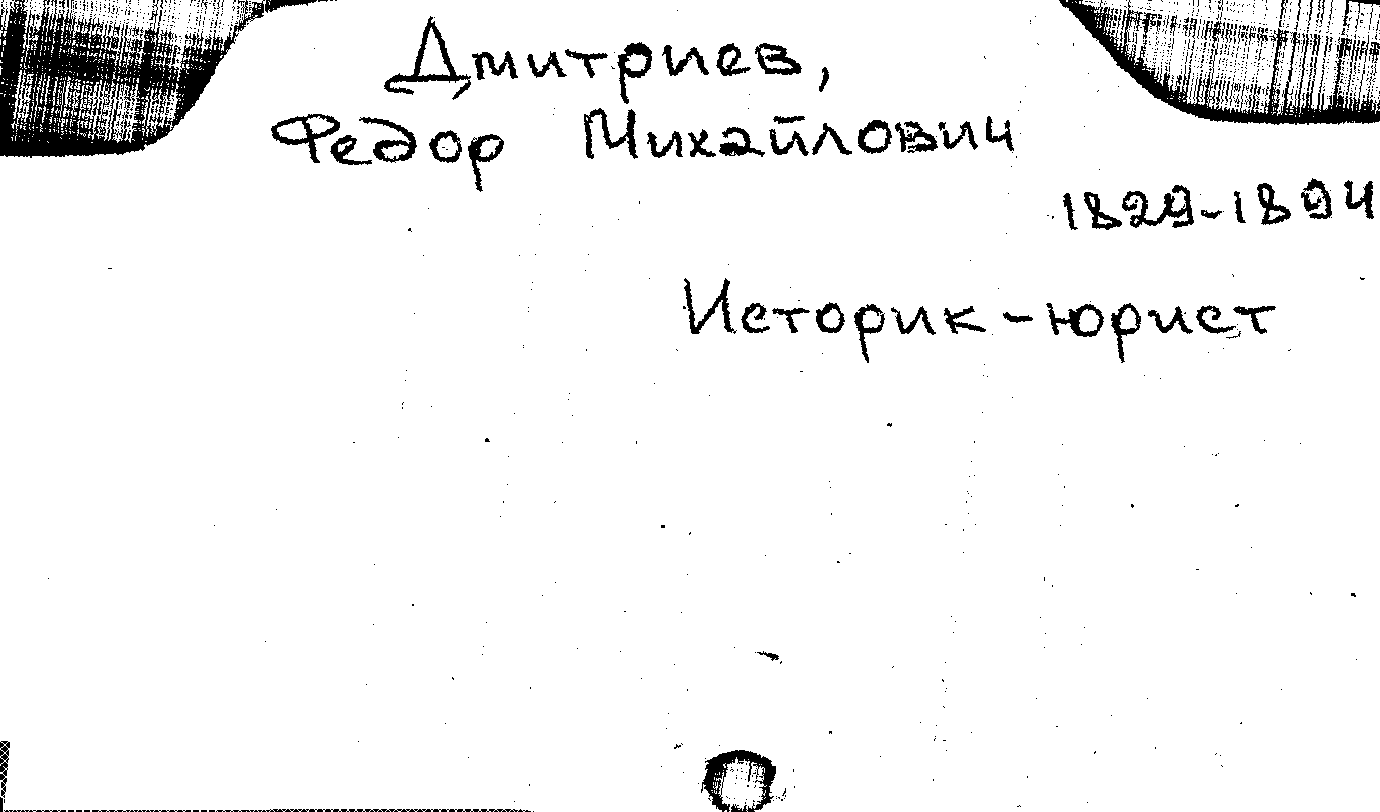 Дмитриев,
Федор Михайлович
1829-1894
Историк-юрист